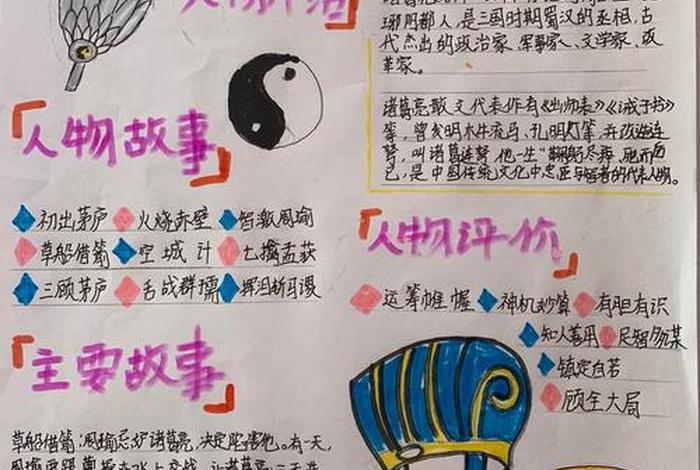 琊阳都人，是三国时期蜀汉的丞相，古
代杰出的政治家、军事家、文学家、改
革家。
诸葛亮散文代表作有《出师表》《诫子书》
等，曾发明木牛流马、孔明灯等，并改造连
弩，叫诸葛连弩。他一生“鞠躬尽瘁，死而后
已，是中国传统文化中忠臣与智者的代表人物。
人物故事
初出茅庐 火烧赤壁 智激周瑜
草船借箭 空城计 七擒孟获
三顾茅庐 舌战群儒 挥泪斩马谡
人物评价
运筹帷幄 神机妙算 有胆有识
知人善用 足智多谋
镇定自若
顾全大局
主要故事
草船借箭：周瑜忌妒诸葛亮，决定陷害他。有一天，